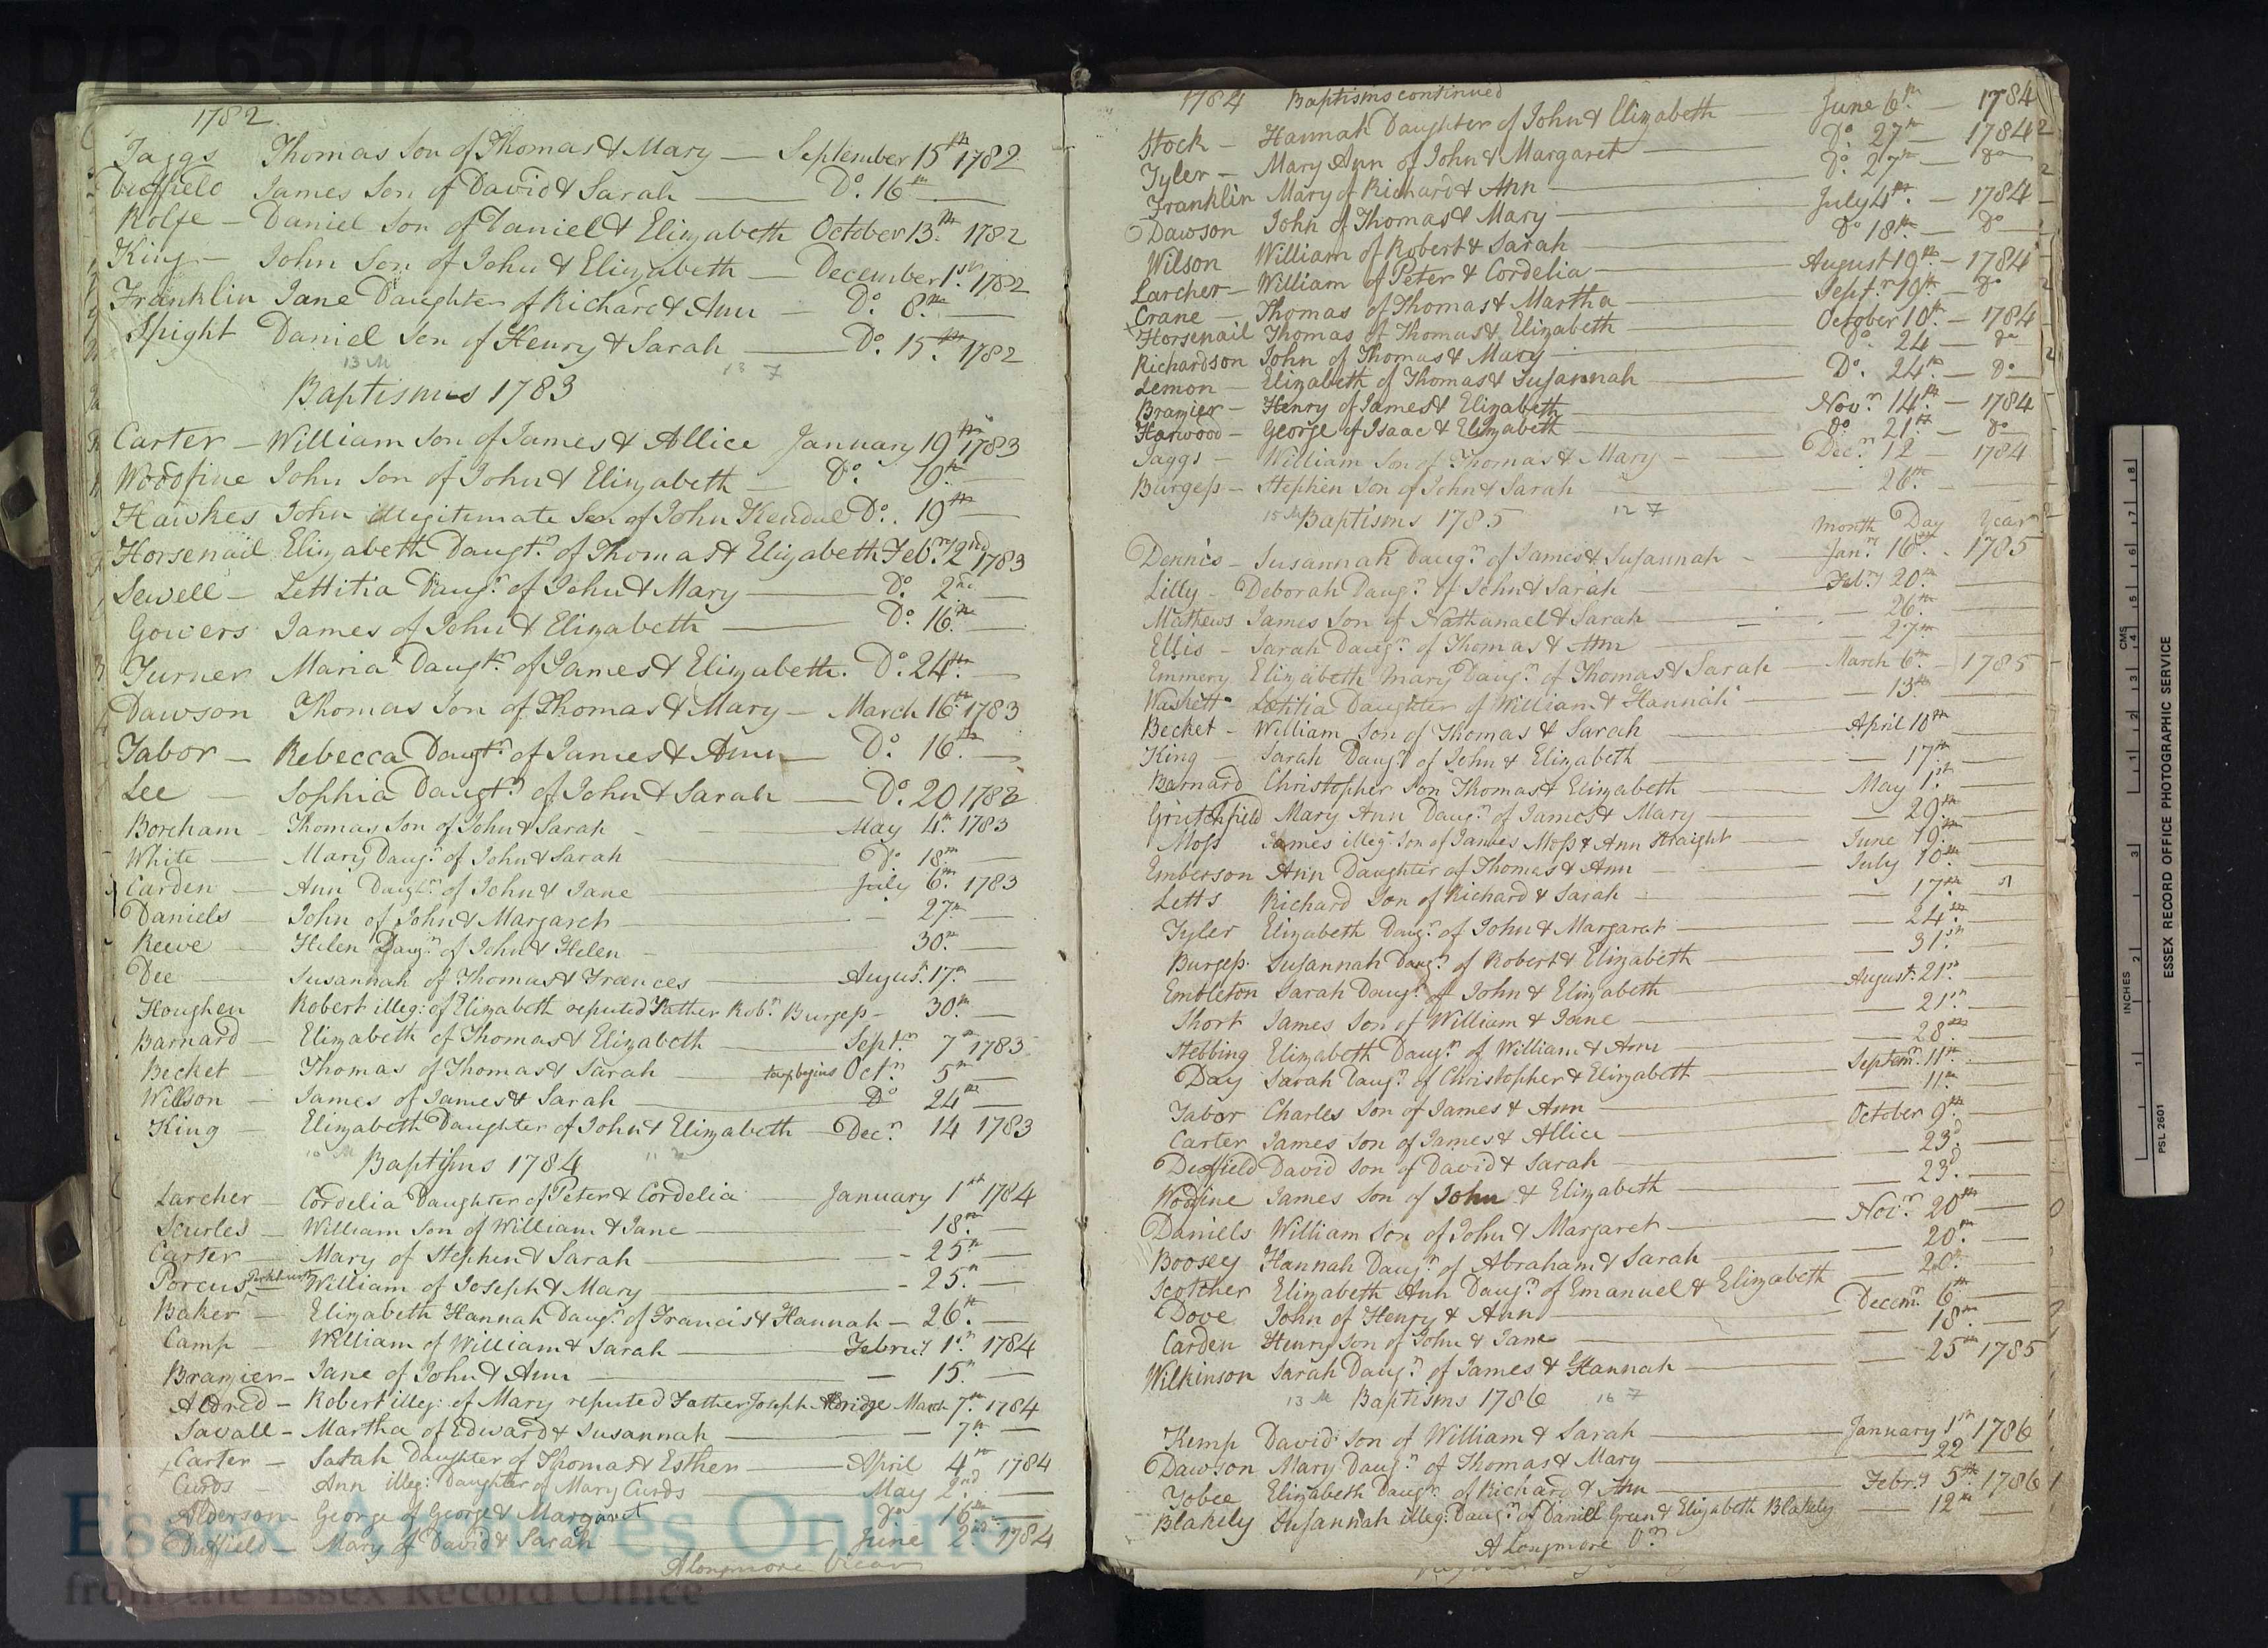 D/P 65/1/3
1782
Jaggs Thomas Son of Thomas & Mary — September 15th 1782
Duffield James Son of David & Sarah — Do. 16th —
Rolfe — Daniel Son of Daniel & Elizabeth October 13th 1782
King — John Son of John & Elizabeth — December 1st 1782
Franklin Jane Daughter of Richard & Ann — Do. 8th —
Spight Daniel Son of Henry & Sarah — Do. 15th 1782
13 M 13 7
Baptisms 1783
Carter — William Son of James & Allice January 19th 1783
Woodfine John Son of John & Elizabeth — Do. 19th —
Hawkes John illegitimate Son of John Kendal Do. 19th —
Horsenail Elizabeth Daugtr. of Thomas & Elizabeth Febry. 2nd 1783
Sewell — Lettitia Daugr. of John & Mary — Do. 2nd —
Gowers James of John & Elizabeth — Do. 16th —
Turner Maria Daugtr. of James & Elizabeth. Do. 24th —
Dawson Thomas Son of Thomas & Mary — March 16th 1783
Tabor — Rebecca Daugtr. of James & Ann — Do. 16th —
Lee — Sophia Daugtr. of John & Sarah — Do. 20 1783
Boreham — Thomas Son of John & Sarah — May 4th 1783
White — Mary Daugr. of John & Sarah — Do. 18th —
Carden — Ann Daugtr. of John & Jane — July 6th 1783
Daniels — John of John & Margaret — 27th —
Reeve — Helen Daugr. of John & Helen — 30th —
Dee — Susannah of Thomas & Frances — Augus. 17th —
Houghen Robert illeg: of Elizabeth reputed Father Robt. Burgess — 30th —
Barnard — Elizabeth of Thomas & Elizabeth — Septr. 7th 1783
Becket — Thomas of Thomas & Sarah — tax begins Octr. 5th —
Willson — James of James & Sarah — Do 24th —
King — Elizabeth Daughter of John & Elizabeth — Decr. 14 1783
Baptisms 1784
Larcher — Cordelia Daughter of Peter & Cordelia — January 1st 1784
Scurles — William Son of William & Jane — 18th —
Carter — Mary of Stephen & Sarah — 25th —
Porcus — William of Joseph & Mary — 25th —
Baker — Elizabeth Hannah Daugr. of Francis & Hannah — 26th —
Camp — William of William & Sarah — Febru.y 1st 1784
Brazier — Jane of John & Ann — 15th —
Aldred — Robert illeg: of Mary reputed Father Joseph Aldridge March 7th 1784
Savall — Martha of Edward & Susannah — 7th —
Carter — Sarah Daughter of Thomas & Esther — April 4th 1784
Curds — Ann illeg: Daughter of Mary Curds — May 2nd —
Alderson — George of George & Margaret — Do 16th —
Duffield — Mary of David & Sarah — June 2nd 1784
A Longmore Vicar
1784 Baptisms continued
Stock — Hannah Daughter of John & Elizabeth — June 6th — 1784
Tyler — Mary Ann of John & Margaret — Do. 27th — 1784
Franklin Mary of Richard & Ann — Do. 27th — Do
Dawson John of Thomas & Mary — July 4th — 1784
Wilson William of Robert & Sarah — Do 18th — Do
Larcher — William of Peter & Cordelia — August 19th — 1784
Crane — Thomas of Thomas & Martha — Septr. 19th — Do
Horsenail Thomas of Thomas & Elizabeth — October 10th — 1784
Richardson John of Thomas & Mary — Do. 24 — Do
Lemon — Elizabeth of Thomas & Susannah — Do. 24th — Do
Brazier — Henry of James & Elizabeth — Novr. 14th — 1784
Harwood — George of Isaac & Elizabeth — Do 21st — Do
Jaggs — William Son of Thomas & Mary — Decr. 12 — 1784
Burgess — Stephen Son of John & Sarah — 26th —
15 M Baptisms 1785 12 7
Month Day Year
Dennis — Susannah Daugr. of James & Susannah — Janry. 16th — 1785
Lilly — Deborah Daugr. of John & Sarah — Febry 20th —
Mathews James Son of Nathanael & Sarah — 26th —
Ellis — Sarah Daugr. of Thomas & Ann — 27th —
Emmery Elizabeth Mary Daugr. of Thomas & Sarah — March 6th — 1785
Waskett — Lœtitia Daughter of William & Hannah — 13th —
Becket — William Son of Thomas & Sarah — April 10th —
King — Sarah Daugr. of John & Elizabeth — 17th —
Barnard Christopher Son Thomas & Elizabeth — May 1st —
Grutchfield Mary Ann Daugr. of James & Mary — 29th —
Moss James illeg: Son of James Moss & Ann Straight — June 19th —
Emberson Ann Daughter of Thomas & Ann — July 10th —
Letts Richard Son of Richard & Sarah — 17th —
Tyler Elizabeth Daugr. of John & Margaret — 24th —
Burgess. Susannah Daugr. of Robert & Elizabeth — 31st —
Embleton Sarah Daugr. of John & Elizabeth — August. 21st —
Short James Son of William & Jane — 21st —
Stebbing Elizabeth Daugr. of William & Ann — 28th —
Day Sarah Daugr. of Christopher & Elizabeth — Septemr. 11th —
Tabor Charles Son of James & Ann — 11th
Carter James Son of James & Allice — October 9th —
Duffield David Son of David & Sarah — 23d —
Wodfine James Son of John & Elizabeth — 23d —
Daniels William Son of John & Margaret — Novr. 20th —
Boosey Hannah Daugr. of Abraham & Sarah — 20th —
Scotcher Elizabeth Ann Daugr. of Emanuel & Elizabeth — 20th —
Dove John of Henry & Ann — Decemr. 6th —
Carden Henry Son of John & Jane — 18th —
Wilkinson Sarah Daugr. of James & Hannah — 25th 1785
13 M Baptisms 1786 16 7
Kemp David Son of William & Sarah — January 1st 1786
Dawson Mary Daugr. of Thomas & Mary — 22 —
Jobee Elizabeth Daugr. of Richard & Ann — Febry 5th 1786
Blakely Susannah illeg: Daugr. of Daniel Green & Elizabeth Blakely — 12th —
A Longmore Vr.
Essex Archives Online
from the Essex Record Office
INCHES 1 2 3
CMS 1 2 3 4 5 6 7 8
ESSEX RECORD OFFICE PHOTOGRAPHIC SERVICE
PSL 2601